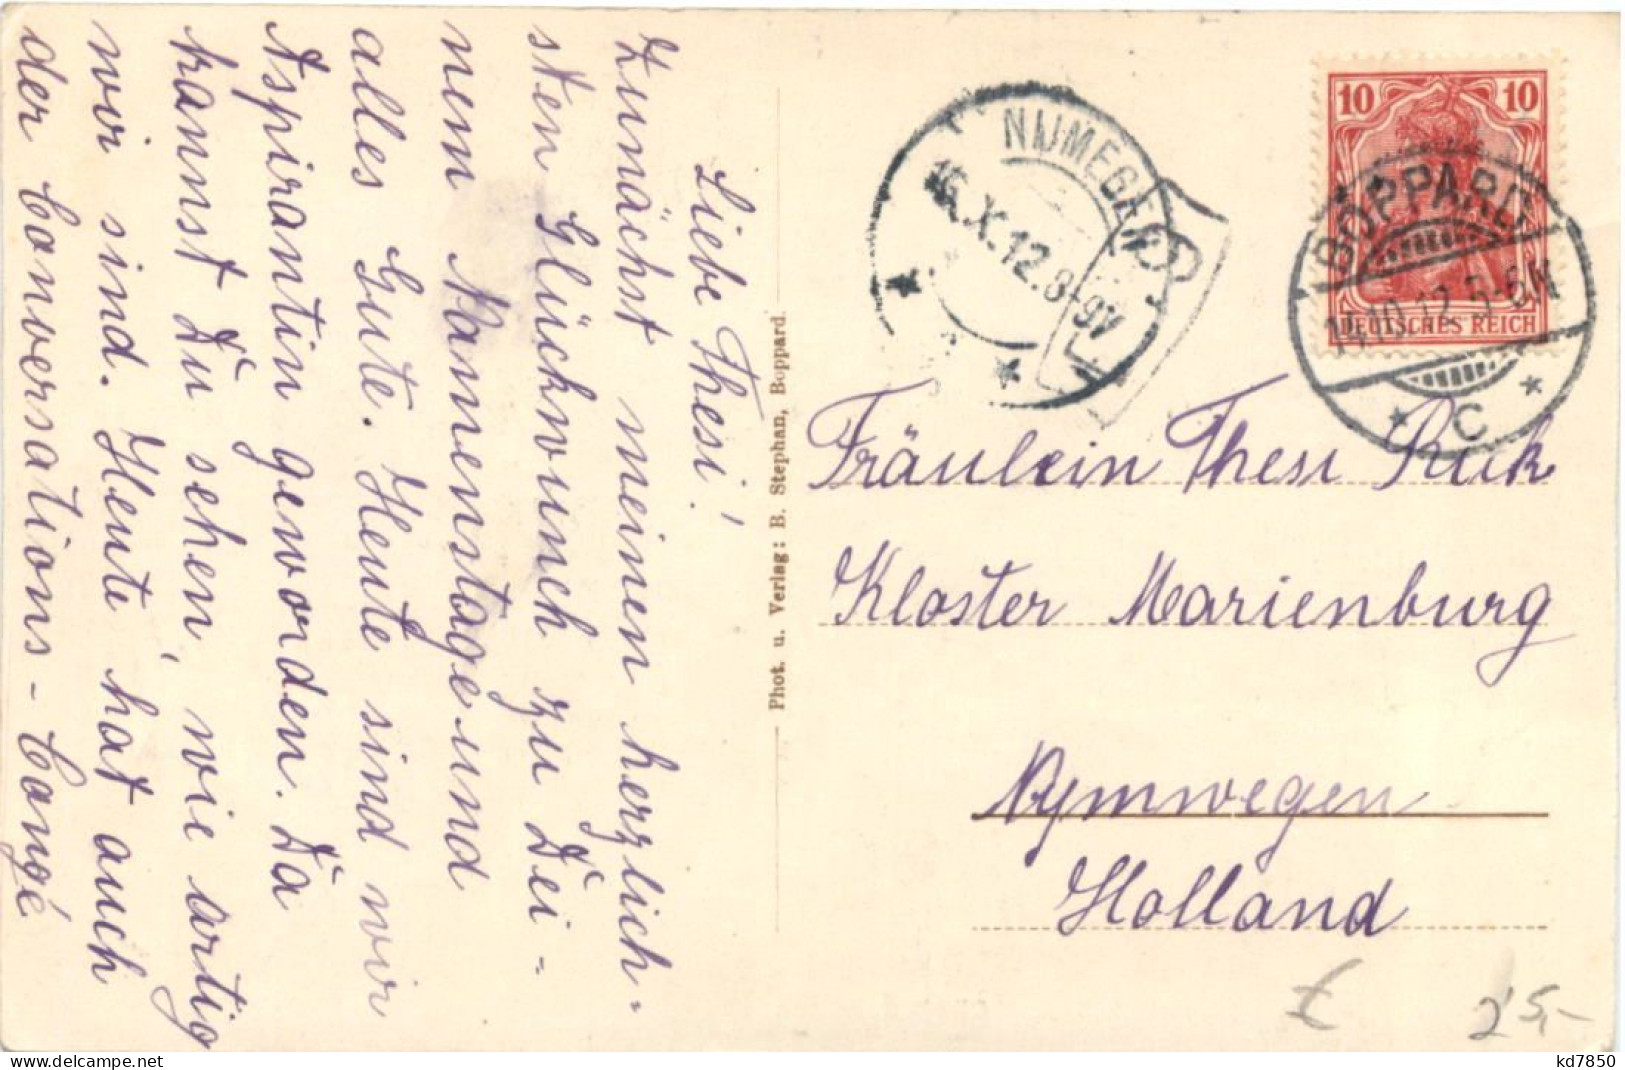 Liebe Thesi!
Zunächst meinen herzlich-
sten Glückwunch zu Dei-
nem Namenstage und
alles Gute. Heute sind wir
Aspirantin geworden. Da
kannst Du sehen, wie artig
wir sind. Heute hat auch
der Conversations-Congé
Phot. u. Verlag: B. Stephan, Boppard.
NIJMEGEN
16.X.12.8-9V
10 10
DEUTSCHES REICH
BOPPARD
14.10.12.5-6N
* C *
Fräulein Thesi
Kloster Marienburg
Nymwegen
Holland
25,-
delcampe.net
kd7850